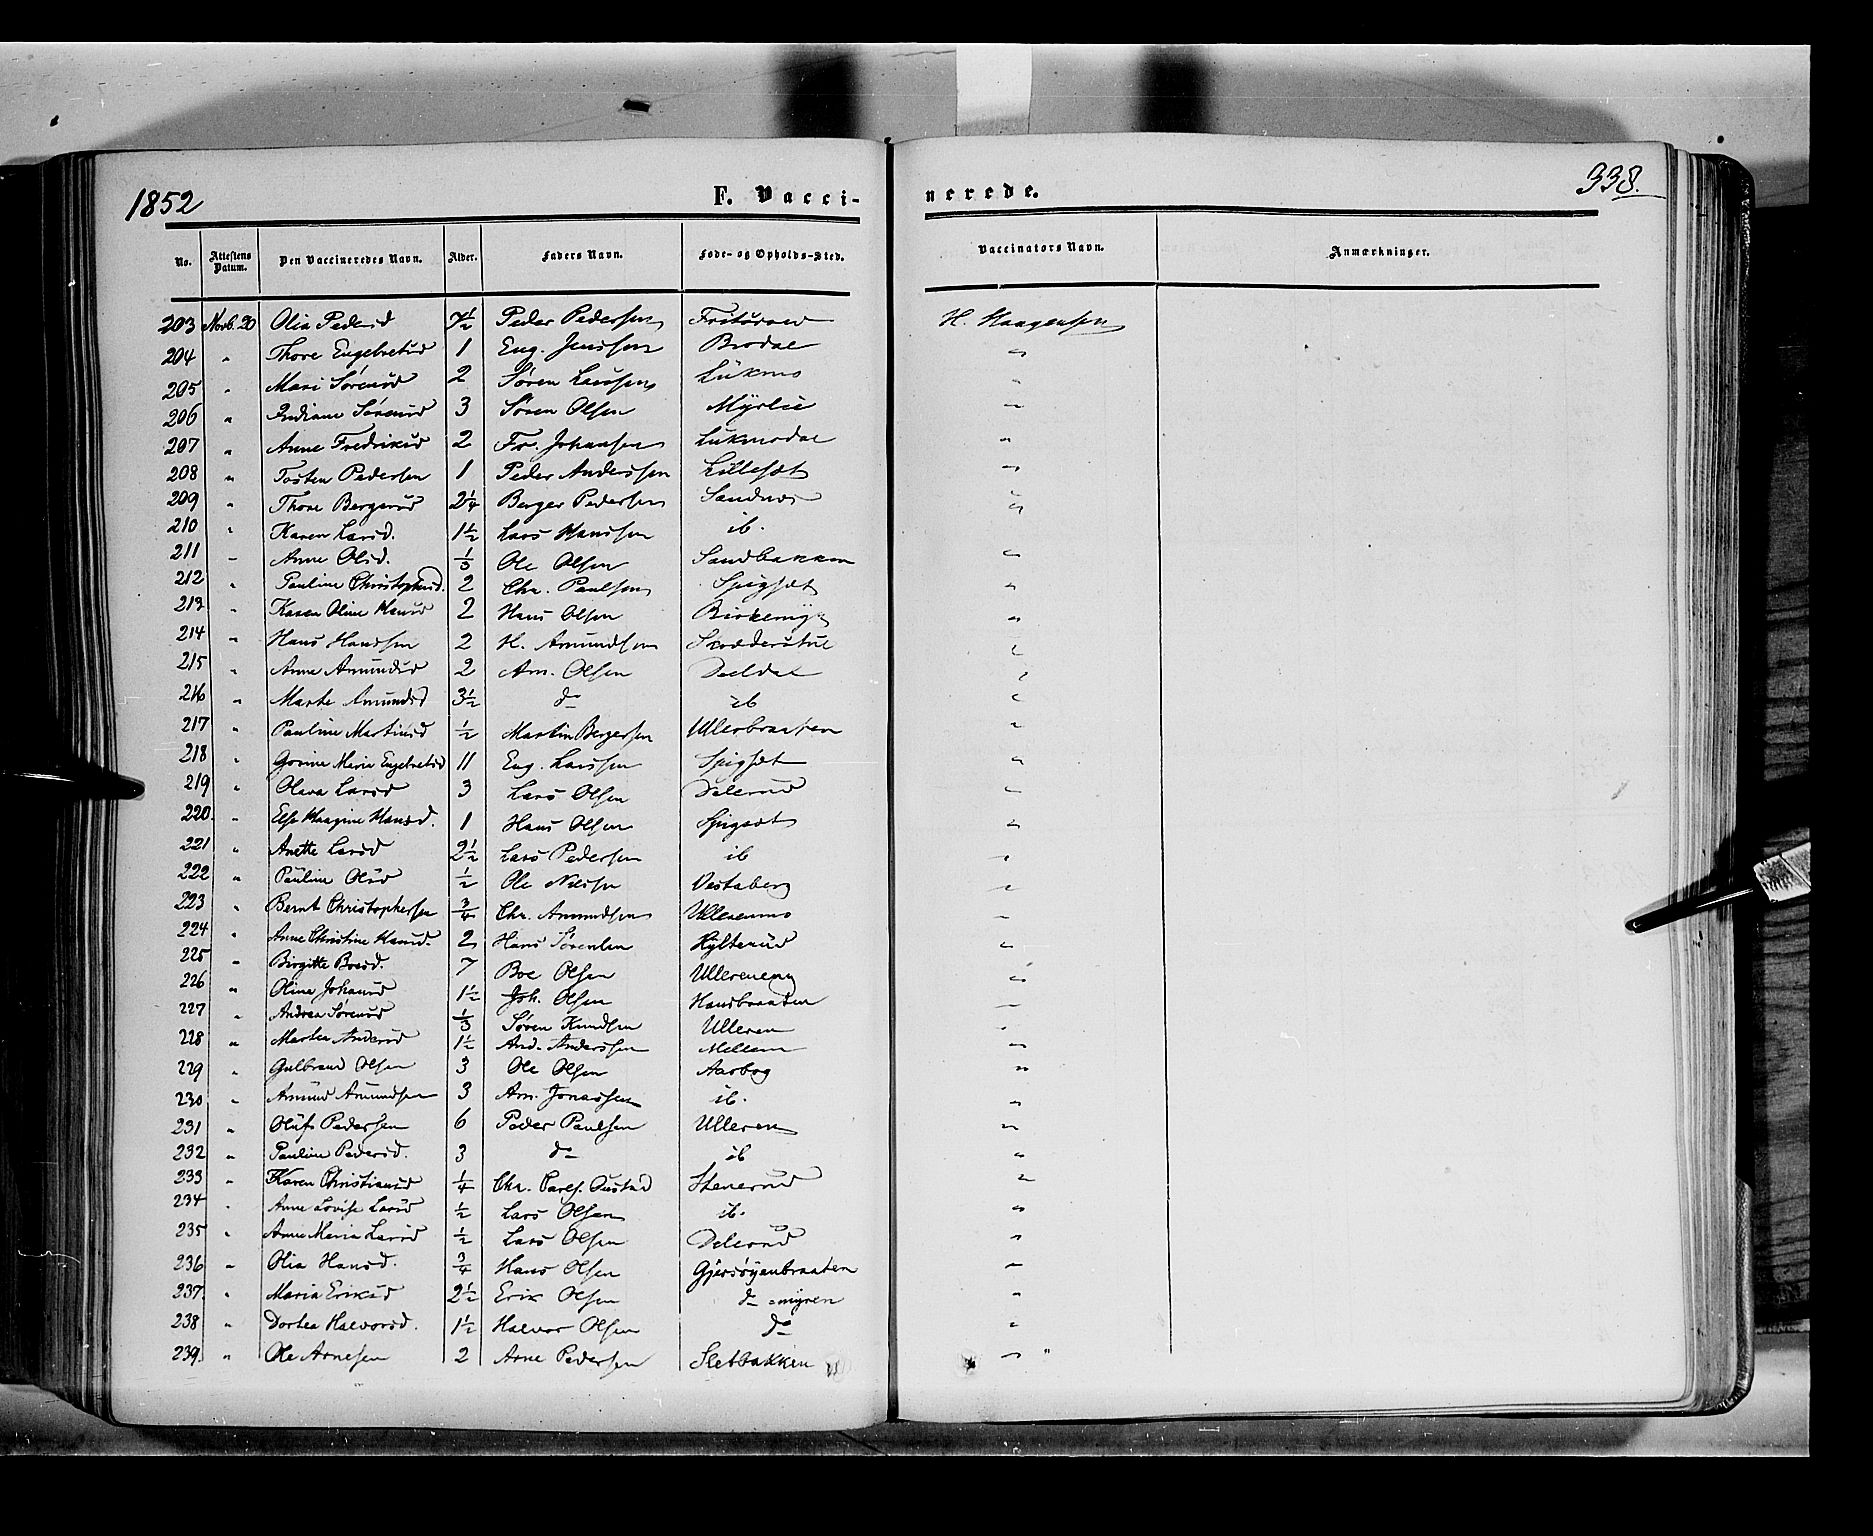 1852 F. Vacci- nerede. 338.
No. Attestens Datum. Den Vaccineredes Navn. Alder. Faders Navn. Føde- og Opholds-Sted. Vaccinators Navn. Anmærkninger.
203 Novb. 20 Olia Pedersd 7½ Peder Pedersen H. Haagensen
204 " Thore Engebretsd 1 Eng. Jenssen Brodal "
205 " Mari Sørensd 2 Søren Larssen Lükmo "
206 " Andriane Sørensd 3 Søren Olsen Myrlie "
207 " Anne Fredriksd 2 Fr. Johansen Lükmodal "
208 " Tosten Pedersen 1 Peder Anderssen Lillesæt "
209 " Thore Bergersd 2¼ Berger Pedersen Sandnæs "
210 " Karen Larsd. 1½ Lars Hanssen ib. "
211 " Anne Olsd. ⅓ Ole Olsen Sandbakken "
212 " Pauline Christophersd. 2 Chr. Paulsen Spigset "
213 " Karen Oline Hansd 2 Hans Olsen Birkemyr "
214 " Hans Hanssen 2 H. Amundsen Skodderstul "
215 " Anne Amundsd 2 Am. Olsen Deeldal "
216 " Marte Amundsd 3½ do ib "
217 " Pauline Martinsd ½ Martin Bergersen Ullerbraaten "
218 " Gorine Marie Engebretsd 11 Eng. Larssen Spigsæt "
219 " Olava Larsd 3 Lars Olsen Delerud "
220. " Else Haagine Hansd. 1 Hans Olsen Spigsæt "
221 " Anette Larsd 2½ Lars Pedersen ib "
222 " Pauline Olsd ½ Ole Nilsen Vestaberg "
223 " Bernt Christophersen ¾ Chr. Amundsen Ullerenmo "
224 " Anne Christine Hansd. 2 Hans Sørensen Hylterud "
225 " Birgitte Boesd. 7 Boe Olsen Ullereneng "
226 " Oline Johansd 1½ Joh. Olsen Haudbraaten "
227 " Andrea Sørensd ⅓ Søren Knudsen Ulleren "
228 " Martea Andersd 1½ And. Anderssen Mellem "
229 " Gulbrand Olsen 3 Ole Olsen Aasbog "
230 " Amund Amundsen 3 Am. Jonassen ib. "
231 " Oluf Pedersen 6 Peder Paulsen Ulleren "
232 " Pauline Pedersd. 3 do ib "
233 " Karen Christiansd ¼ Chr. Carls. Qustad Stenerud "
234 " Anne Lovise Larsd ½ Lars Olsen ib. "
235 " Anne Maria Larsd ½ Lars Olsen Delerud "
236 " Olia Hansd. ¾ Hans Olsen Gjersøyenbraaten "
237. " Maria Eriksd 2½ Erik Olsen do =myren "
238 " Dortea Halvorsd. 1½ Halvor Olsen do "
239. " Ole Arnesen 2 Arne Pedersen Sletbakken "